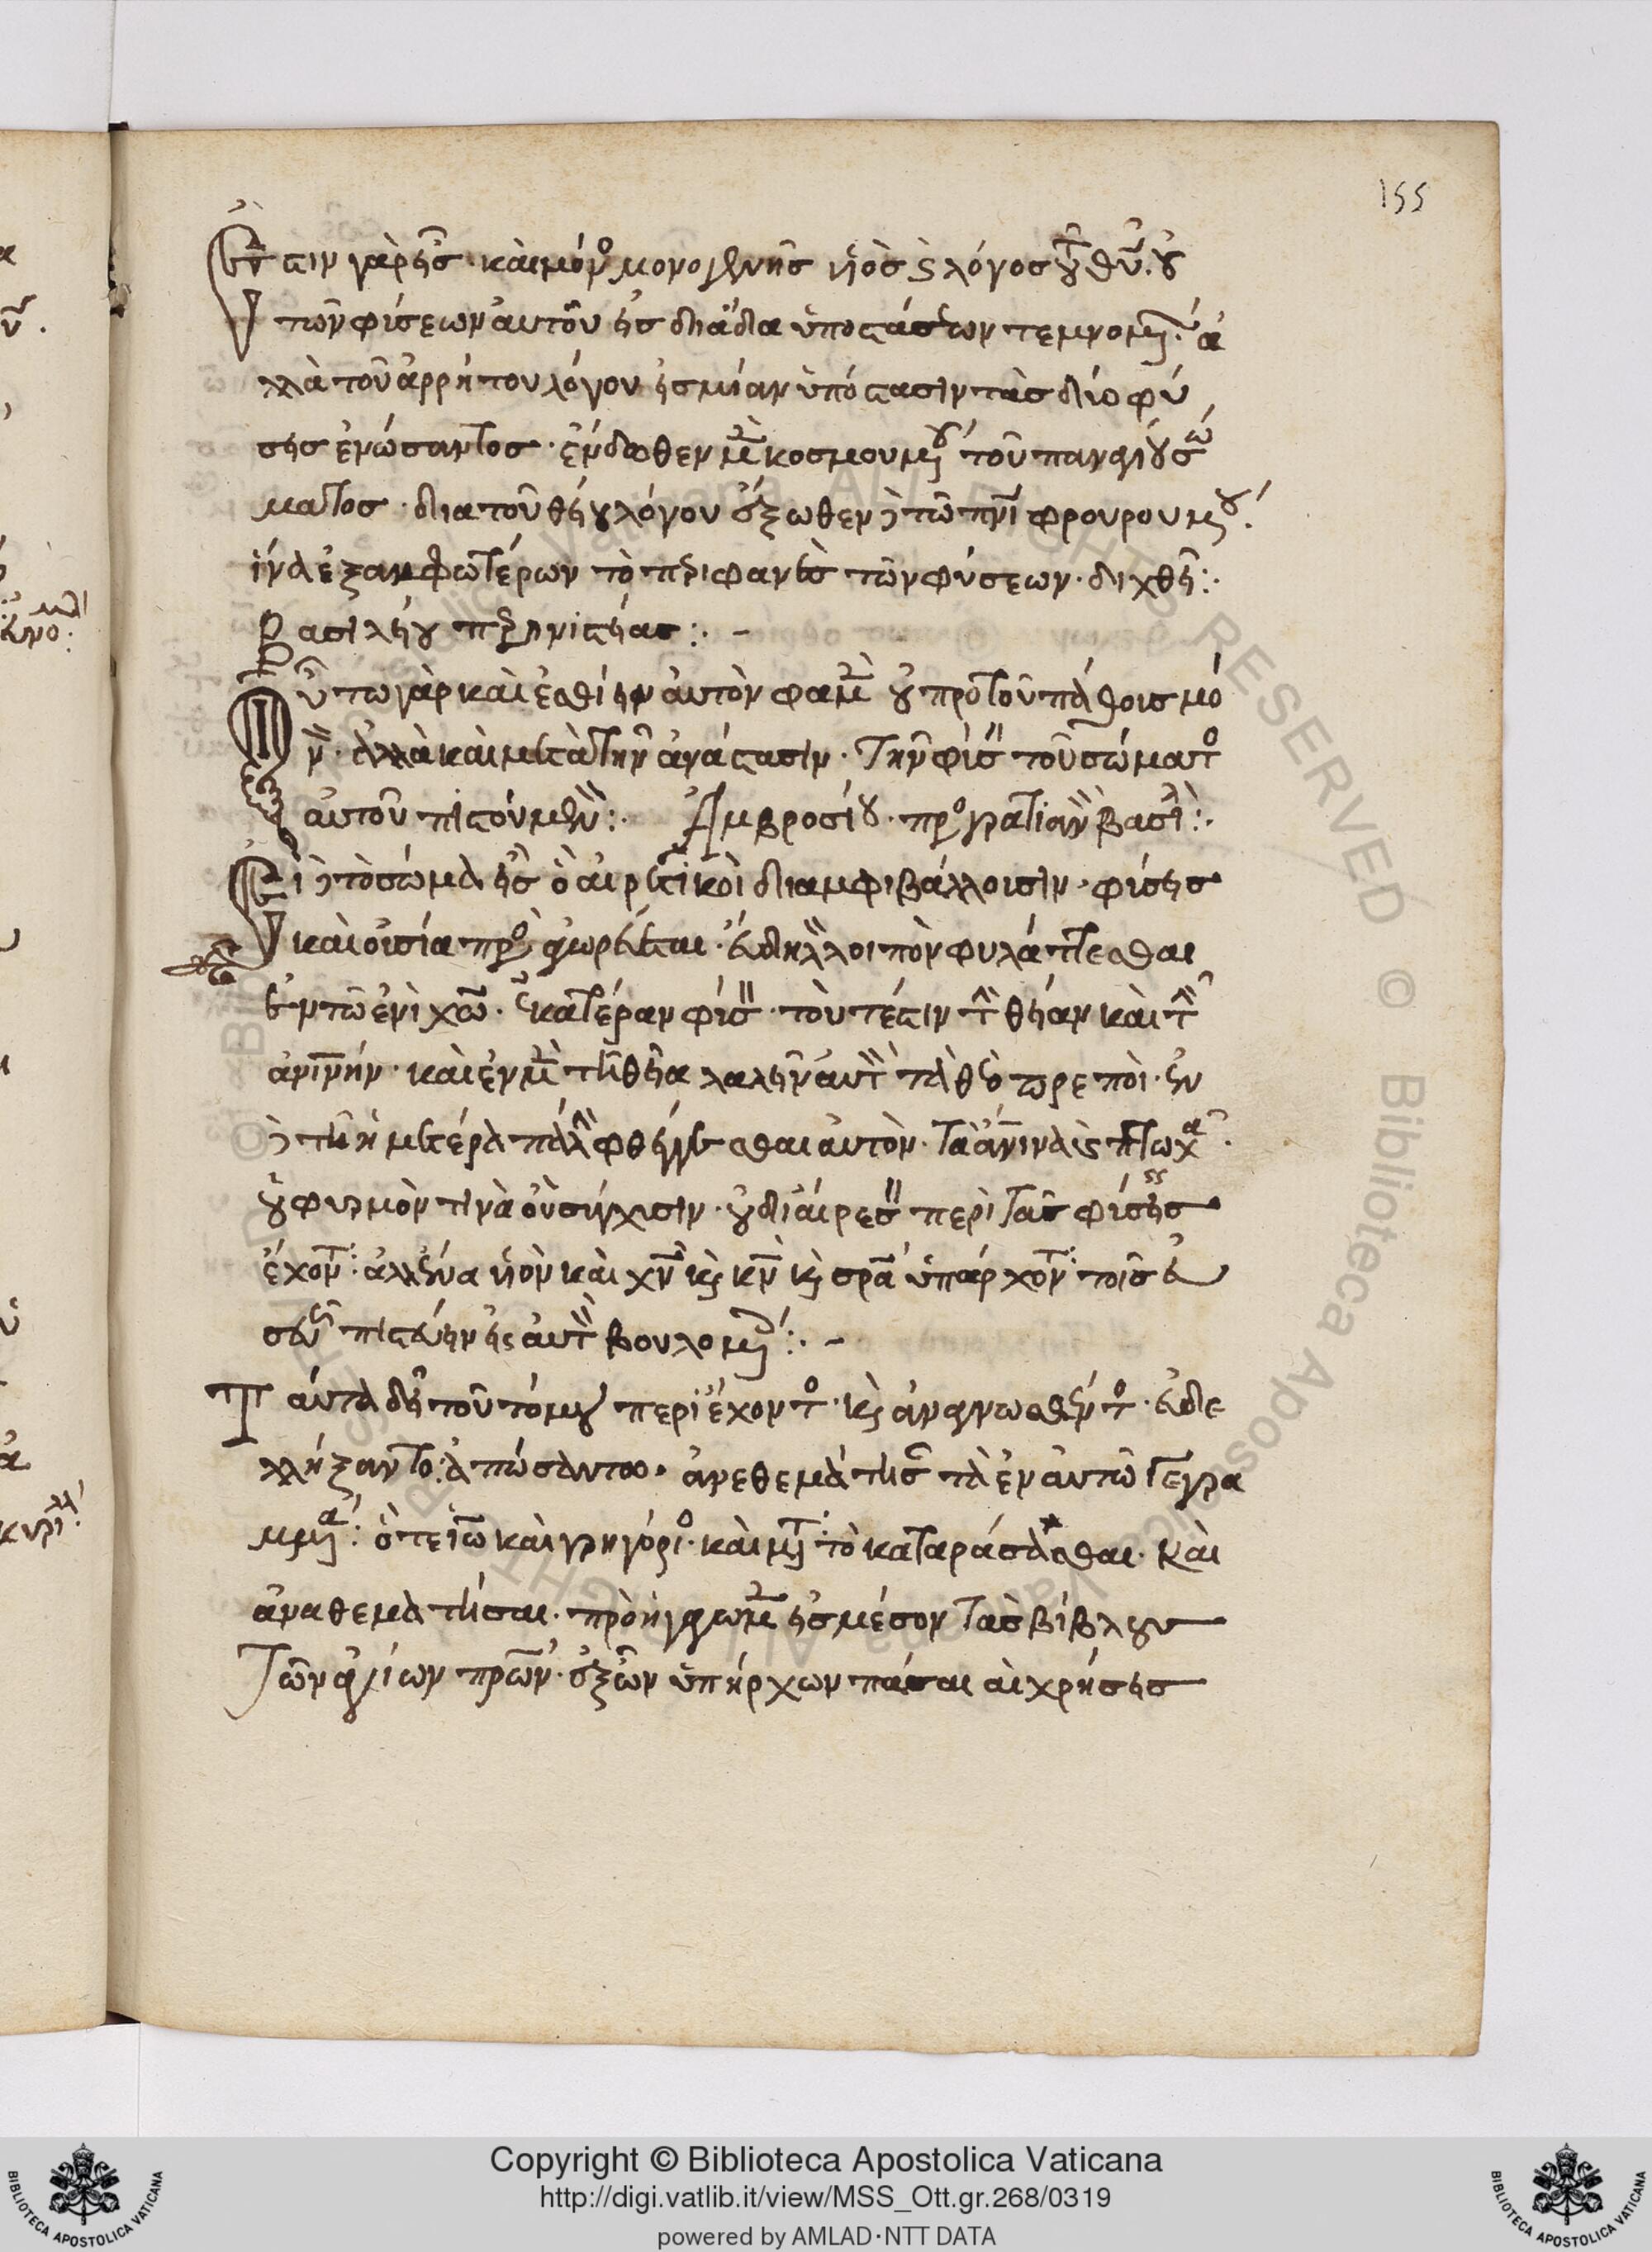 155
Ἔστιν γὰρ εἷς· καὶ μόνος μονογενὴς υἱὸς καὶ λόγος τοῦ θυ· οὐ
τῶν φύσεων αὐτοῦ εἰς διάδα ὑποστάσεων τεμνομεν· ἀ
λλὰ τοῦ ἀρρήτου λόγου εἰς μίαν ὑπόστασιν τὰς δύο φύ
σεις ἑνώσαντος· ἔνδοθεν μὲν κοσμουμένου τοῦ παναγίου σώ
ματος· δια τοῦ θείου λόγου ἔξωθεν δὲ τῶ πνι φρουρουμένου·
ἵνα ἐξ ἀμφωτέρων τὸ περιφανὲς τῶν φύσεων· διχθῆ:·
Βασιλείου πρ σεληνίας:· –
Οὕτω γὰρ καὶ ἐσθίειν αὐτὸν φαμὲν οὐ πρὸ τοῦ πάθους μό
νον· ἀλλὰ καὶ μετὰ τὴν ἀνάστασιν· τὴν φύσιν τοῦ σώματος
αὐτοῦ πιστούμενον:· Ἀμβροσίου· πρὸς γρατιανὸν βασιλ:·
Εἰ δὲ τὸ σῶμα εἰς ὃ αἱρετικοὶ διαμφιβάλλουσιν· φύσεις
καὶ οὐσία προσαγορεύεται· ἔδει λοιπὸν φυλάττεσθαι
ἐν τῶ ἑνὶ χω· ἑκατέραν φύσιν· τουτέστιν τὴν θείαν καὶ τὴν
ἀνινην· καὶ ἐν μὲν τῆ θεία λαλεῖν αὐτὸν τὰ θεοπρεποι· ἐν
δὲ τῆ ἡμετέρα πάλιν φθέγγεσθαι αὐτὸν· τὰ ἀνινα καὶ πτωχὰ·
οὐ φυρμὸν τινὰ οὐ σύγχισιν· οὐ διαίρεσιν περὶ τὰς φύσεις
ἔχον: ἀλλ ἕνα υἱὸν καὶ χν καὶ κν καὶ σρα ὑπάρχον: τοῖς εὐ
σεβῶς πιστεύειν εἰς αὐτὸν βουλομεν:· –
Ταῦτα δὲ τοῦ τόμου περιέχοντος· καὶ ἀναγνωσθέντος· ἐδε
λλήξαντο: ἀπώσαντο· ἀνεθεμάτησαν τὰ ἐν αὐτῶ γεγρα
μμένα: ὅτε ἰω καὶ γρηγόρι· καὶ μετ: τὸ καταράσασθαι· καὶ
ἀναθεματῆσαι· προηγάγωμεν εἰς μέσον τὰς βίβλους
τῶν ἁγίων πρων· ἐξ ὧν ὑπήρχων πάσαι αἱ χρήσεις
Copyright © Biblioteca Apostolica Vaticana
http://digi.vatlib.it/view/MSS_Ott.gr.268/0319
powered by AMLAD·NTT DATA